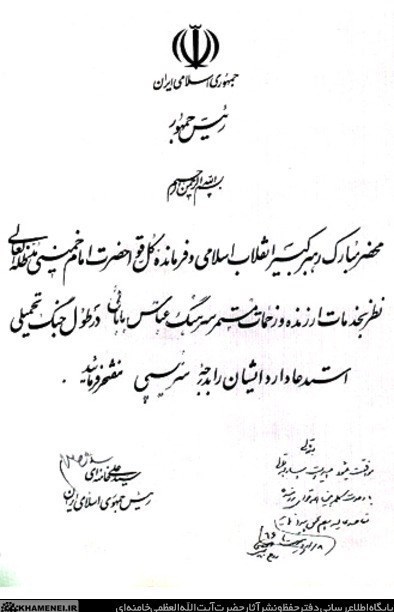 جمهوری اسلامی ایران
رئیس جمهور
بسم الله الرحمن الرحیم
محضر مبارک رهبر کبیر انقلاب اسلامی و فرمانده کل قوا حضرت امام خمینی مدظله العالی
نظر بخدمات ارزنده و زحمات مستمر سرهنگ عباس بابائی در طول جنگ تحمیلی
استدعا دارد ایشان را بدرجه سرتیپی مفتخر فرمائید .
سید علی خامنه‌ای
رئیس جمهوری اسلامی ایران
بتعالی
موافقت میشود
KHAMENEI.IR پایگاه اطلاع رسانی دفتر حفظ و نشر آثار حضرت آیت الله العظمی خامنه‌ای